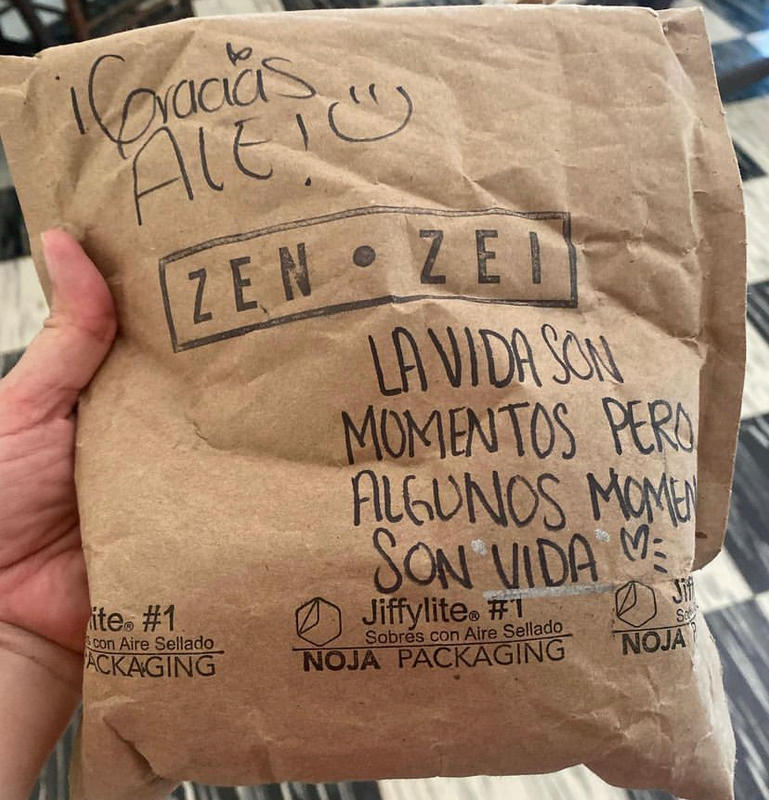 ¡Gracias
ALE! :)
ZEN • ZEI
LA VIDA SON
MOMENTOS PERO
ALGUNOS MOMEN
SON "VIDA"
lite® #1
Sobres con Aire Sellado
NOJA PACKAGING
Jiffylite® #1
con Aire Sellado
ACKAGING
Jiff
NOJA